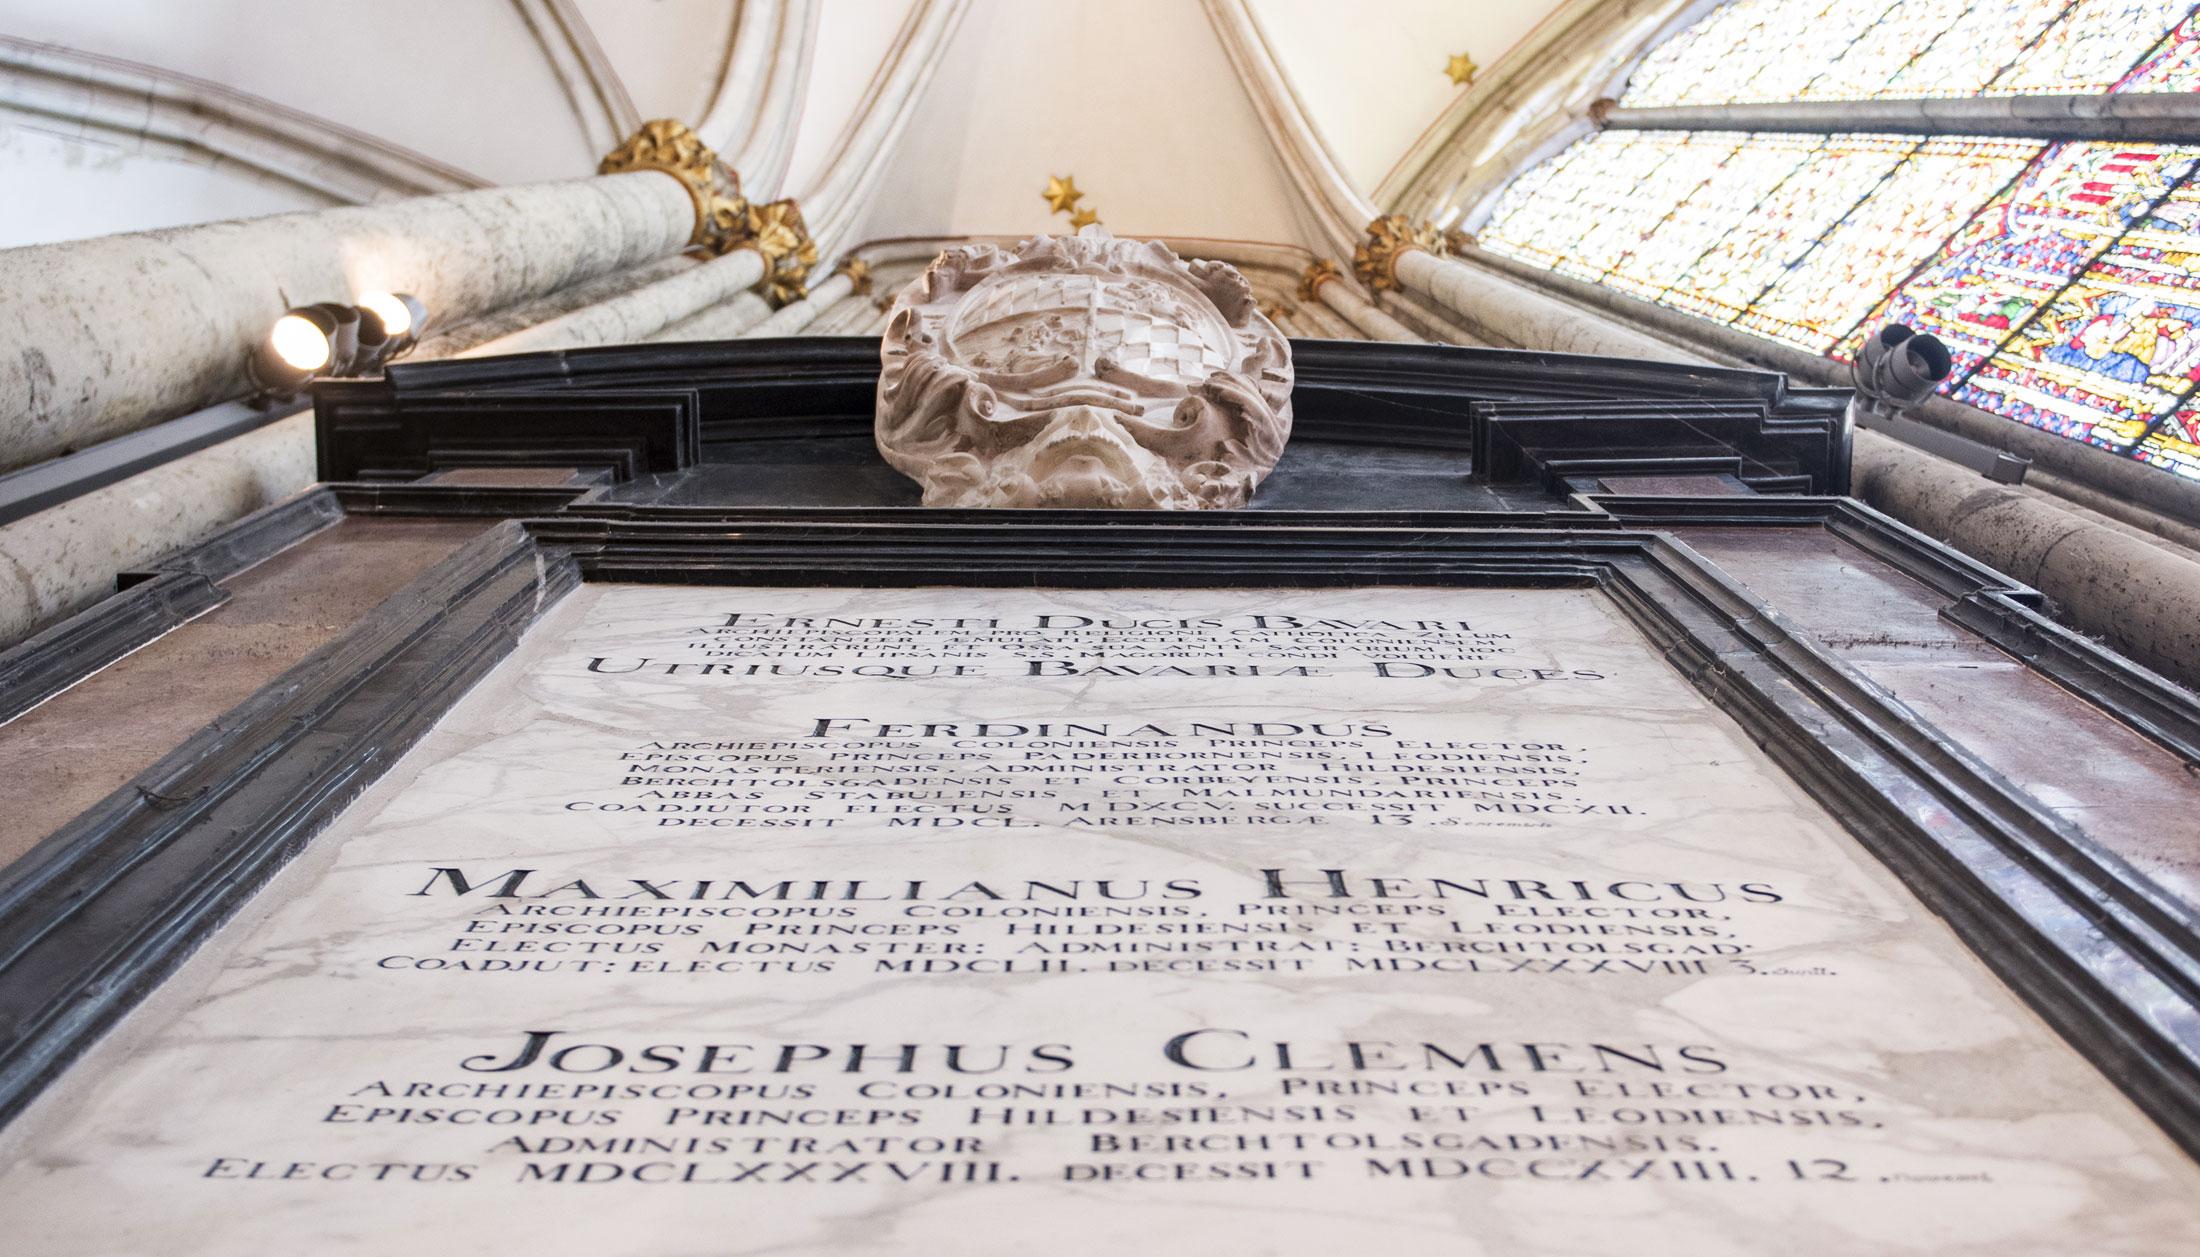 ERNESTI DUCIS BAVARI
ARCHIEPISCOPALEM PRO RELIGIONE CATHOLICA ZELUM
CONSTANTER ÆMULATI ECCLESIAM COLONIENSEM
ILLUSTRARUNT, ET OSSA SUA ANTE SACRARIUM HOC
DICATUM LIPSANIS S.S. MAGORUM CONDI VOLUERE
UTRIUSQUE BAVARIÆ DUCES
FERDINANDUS
ARCHIEPISCOPUS COLONIENSIS PRINCEPS ELECTOR,
EPISCOPUS PRINCEPS PADERBORNENSIS, LEODIENSIS,
MONASTERIENSIS, ADMINISTRATOR HILDESIENSIS,
BERCHTOLSGADENSIS ET CORBEYENSIS, PRINCEPS
ABBAS STABULENSIS ET MALMUNDARIENSIS,
COADJUTOR ELECTUS MDXCV. SUCCESSIT MDCXII.
DECESSIT MDCL. ARENSBERGÆ 13. Septembris
MAXIMILIANUS HENRICUS
ARCHIEPISCOPUS COLONIENSIS, PRINCEPS ELECTOR,
EPISCOPUS PRINCEPS HILDESIENSIS ET LEODIENSIS,
ELECTUS MONASTER: ADMINISTRAT: BERCHTOLSGAD:
COADJUT: ELECTUS MDCLII. DECESSIT MDCLXXXVIII 3.
JOSEPHUS CLEMENS
ARCHIEPISCOPUS COLONIENSIS, PRINCEPS ELECTOR,
EPISCOPUS PRINCEPS HILDESIENSIS ET LEODIENSIS,
ADMINISTRATOR BERCHTOLSGADENSIS.
ELECTUS MDCLXXXVIII. DECESSIT MDCCXXIII. 12.